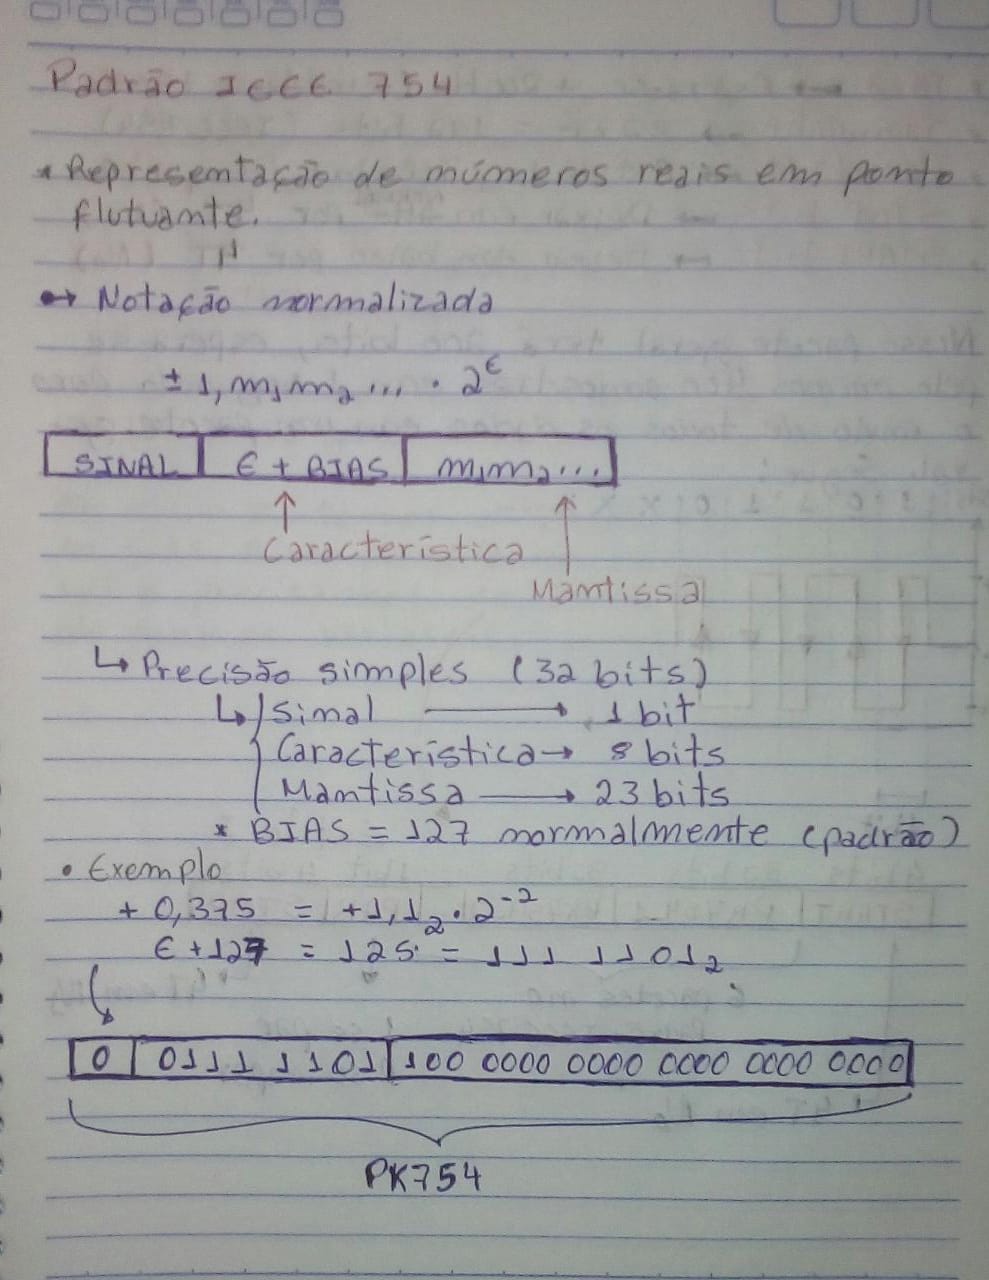 Padrão IEEE 754
* Representação de números reais em ponto
flutuante.
↦ Notação normalizada
± 1,m₁m₂... · 2^E
SINAL | E + BIAS | m₁m₂...
Característica
Mantissa
↳ Precisão simples (32 bits)
↳ Sinal → 1 bit
Característica → 8 bits
Mantissa → 23 bits
* BIAS = 127 normalmente (padrão)
• Exemplo
+ 0,375 = +1,1₂ · 2⁻²
E + 127 = 125 = 111 1101₂
0 | 0111 1101 | 100 0000 0000 0000 0000 0000
PK754